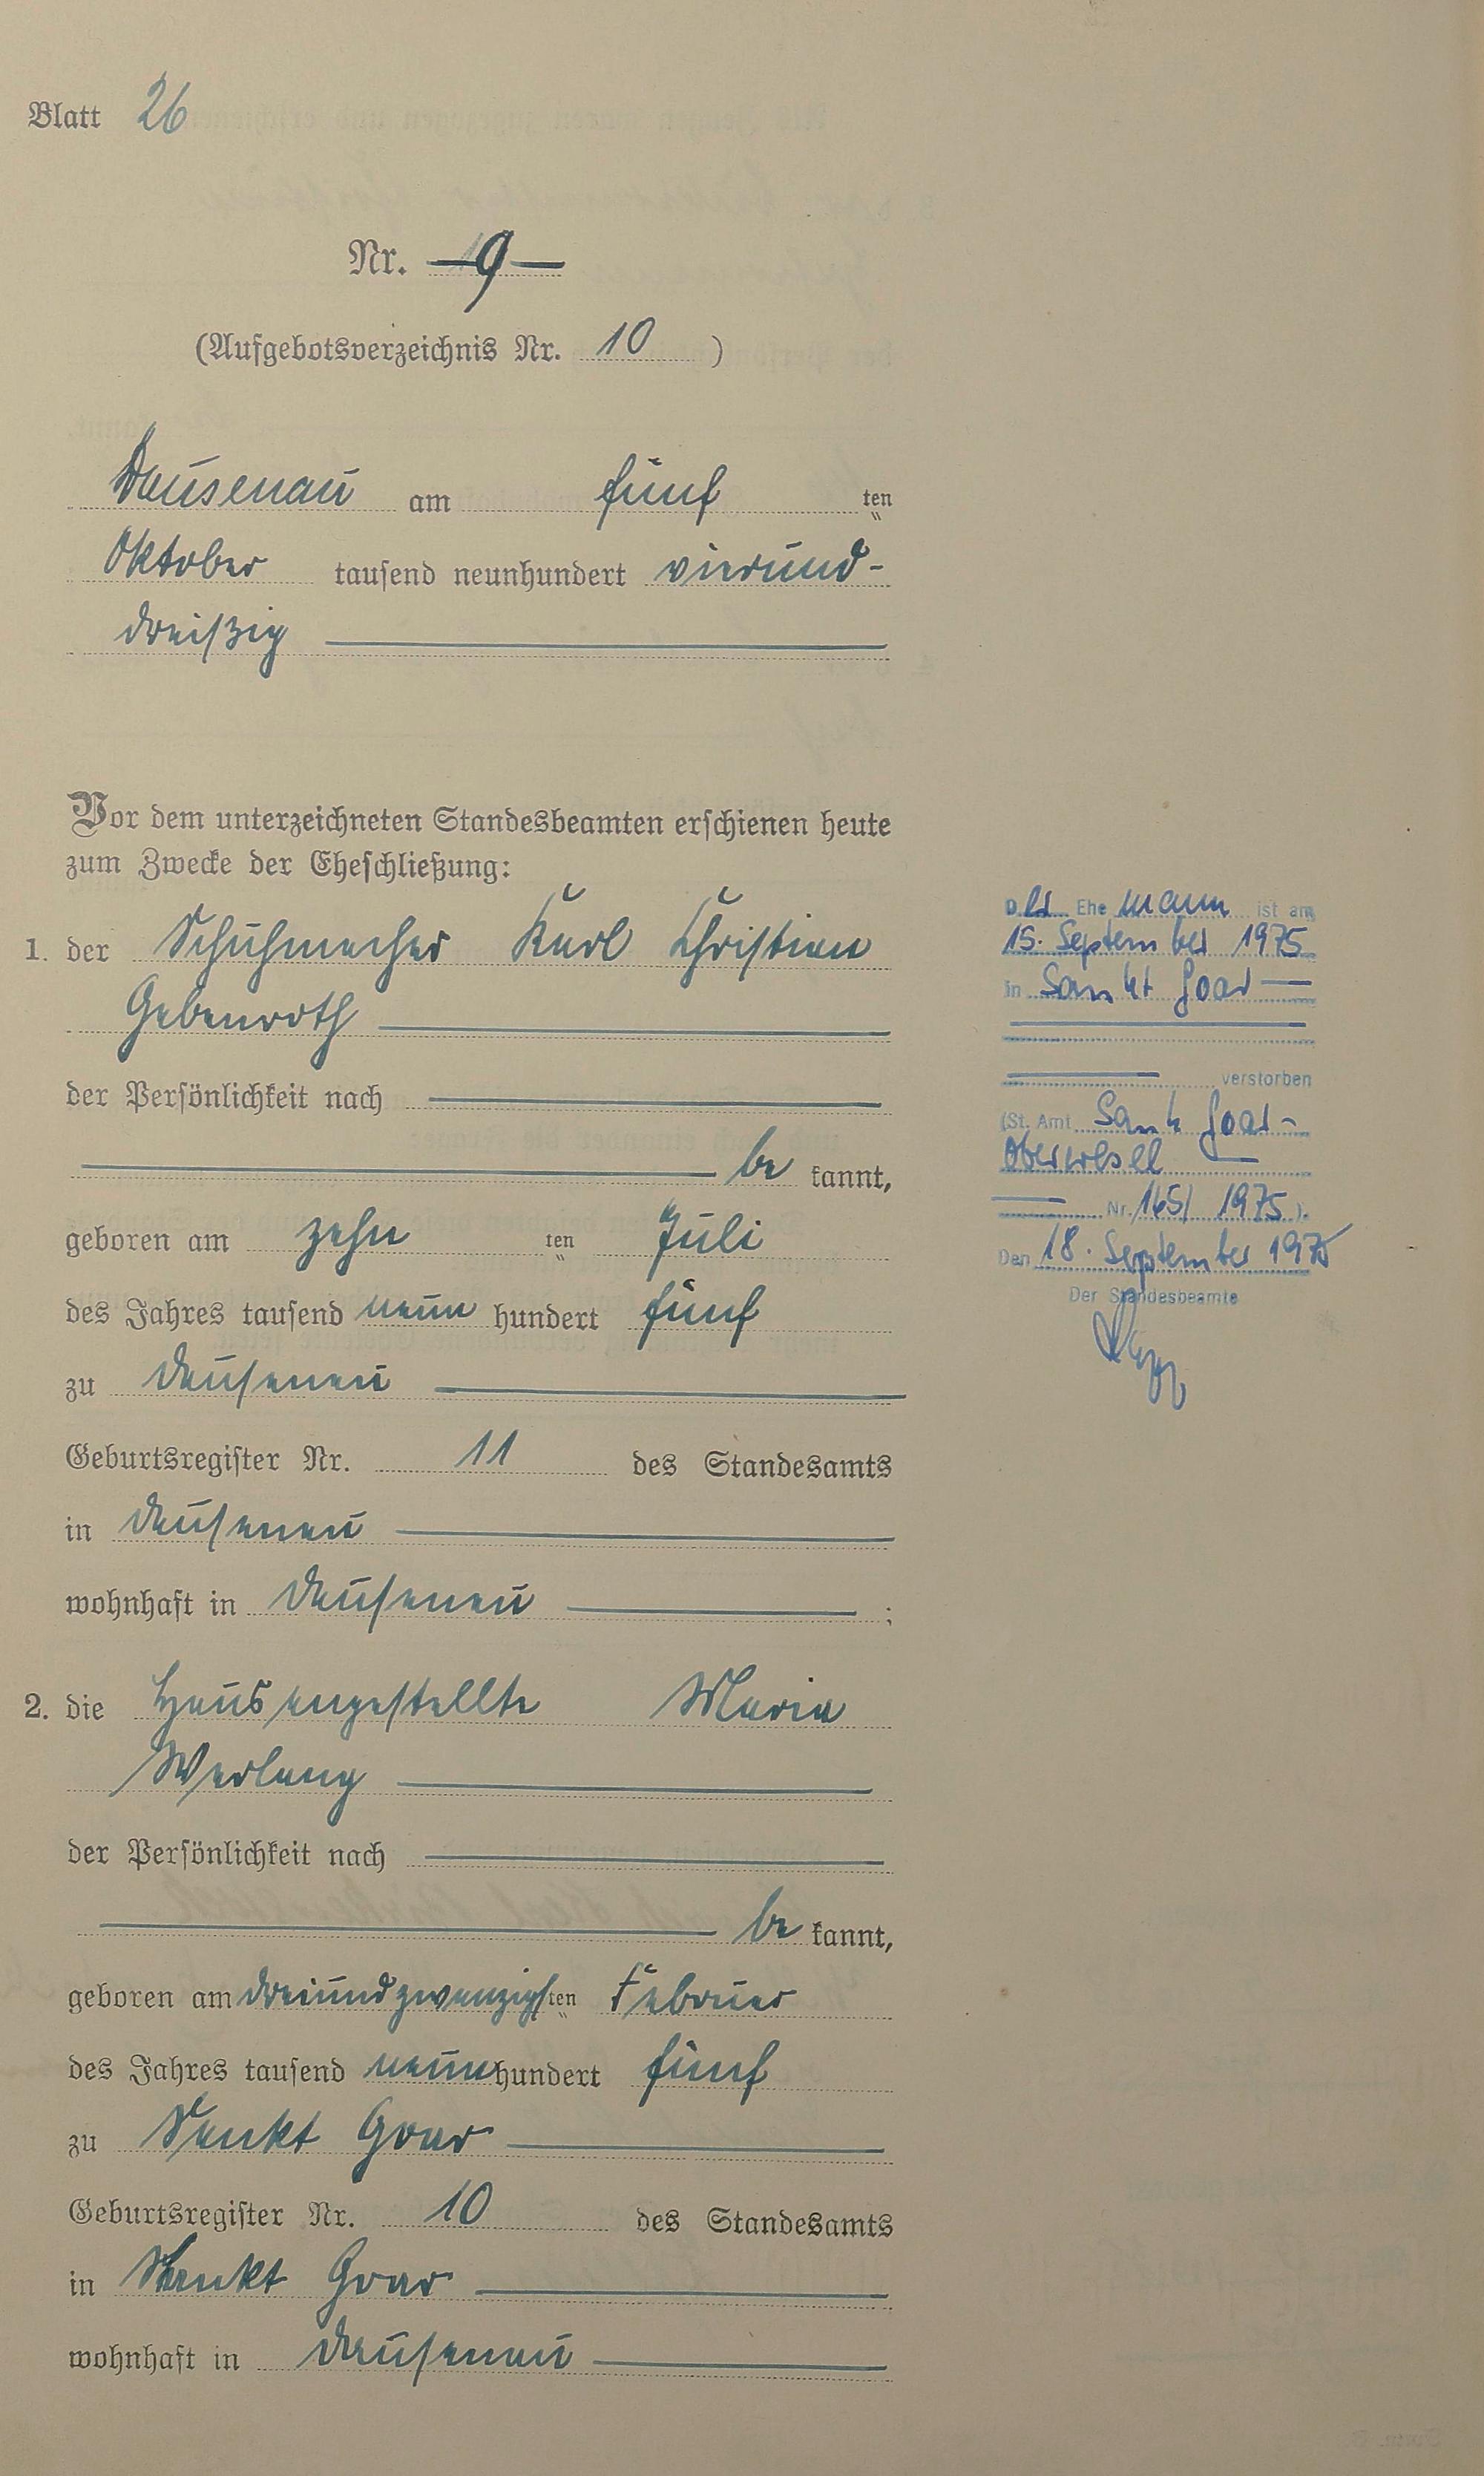 Blatt 26
Nr. 9
(Aufgebotsverzeichnis Nr. 10 )
Dausenau am fünf ten
Oktober tausend neunhundert vierund-
dreißig
Vor dem unterzeichneten Standesbeamten erschienen heute
zum Zwecke der Eheschließung:
1. der Schuhmacher Karl Christian
Gebenroth
der Persönlichkeit nach
be kannt,
geboren am zehn ten Juli
des Jahres tausend neun hundert fünf
zu Dausenau
Geburtsregister Nr. 11 des Standesamts
in Dausenau
wohnhaft in Dausenau ;
2. die Hausangestellte Maria
Werlang
der Persönlichkeit nach
be kannt,
geboren am dreiundzwanzigsten Februar
des Jahres tausend neun hundert fünf
zu Sankt Goar
Geburtsregister Nr. 10 des Standesamts
in Sankt Goar
wohnhaft in Dausenau
Der Ehemann ist am
15. September 1975
in Sankt Goar
verstorben
(St. Amt Sankt Goar-
Oberwesel
Nr. 165/1975).
Den 18. September 1975
Der Standesbeamte